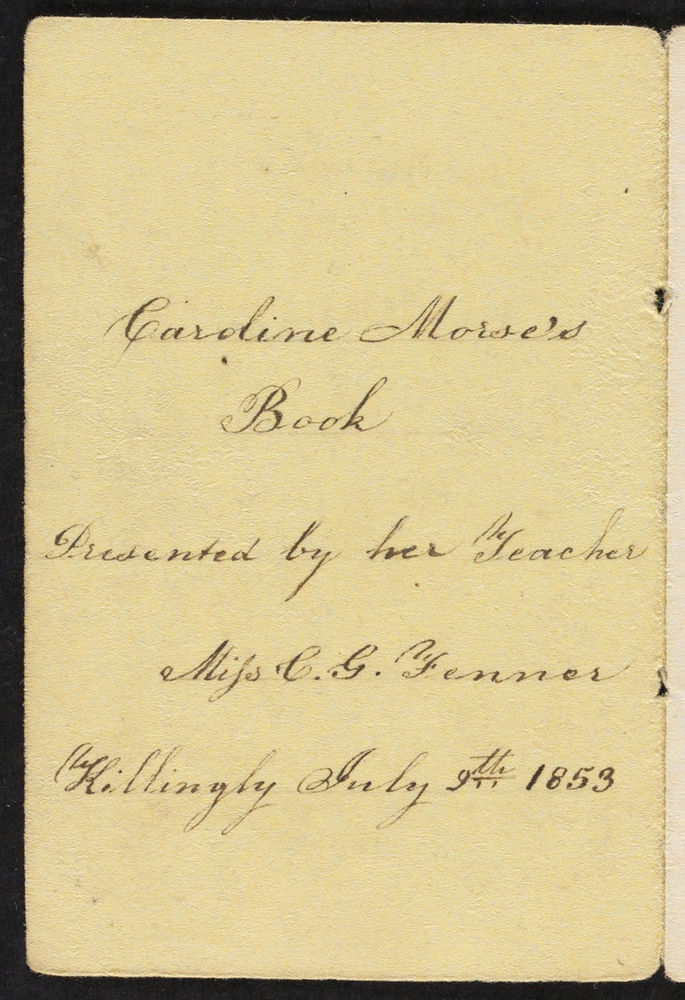 Caroline Morse's
Book
Presented by her Teacher
Miſs C. G. Fenner
Killingly July 9th 1853